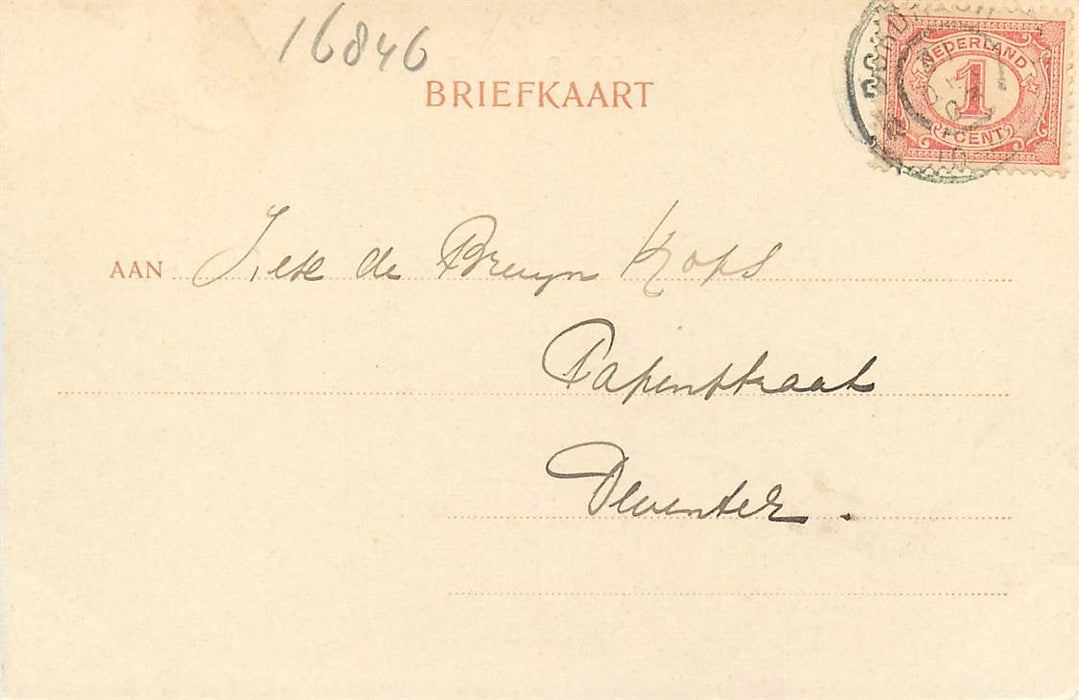 16846
BRIEFKAART
NEDERLAND
1
1 CENT
AAN de Bruyn Kops
Papenstraat
Deventer.